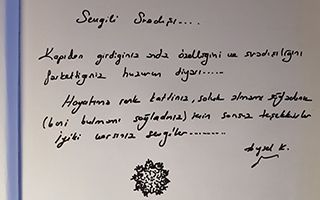 Sevgili Sıradışı....
Kapıdan girdiğiniz anda özelliğini ve sıradışılığını
farkettiğiniz huzurun diyarı......
Hayatıma renk kattınız, soluk almamı sağladınız
(beni bulmamı sağladınız) için sonsuz teşekkürler
iyiki varsınız sevgiler........
Aysel K.